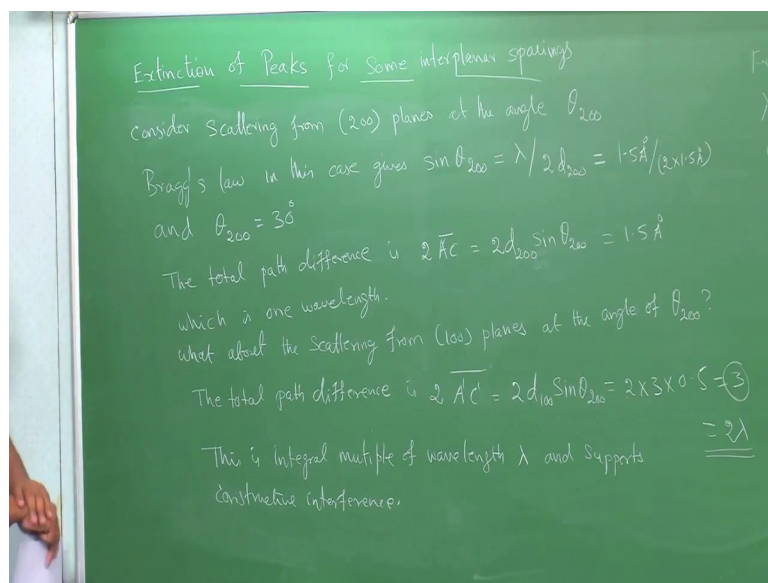 Extinction of Peaks for Some interplanar spacings
Consider Scattering from (200) planes at the angle θ₂₀₀
Bragg's law in this case gives sin θ₂₀₀ = λ/2d₂₀₀ = 1.5Å/(2x1.5Å)
and θ₂₀₀ = 30°
The total path difference is 2 A̅C̅ = 2d₂₀₀ sinθ₂₀₀ = 1.5Å
which is one wavelength.
What about the scattering from (100) planes at the angle of θ₂₀₀?
The total path difference is 2 A̅'C̅' = 2d₁₀₀ Sinθ₂₀₀ = 2x3x0.5 = 3
= 2λ
This is integral mutiple of wavelength λ and supports
constructive interference.